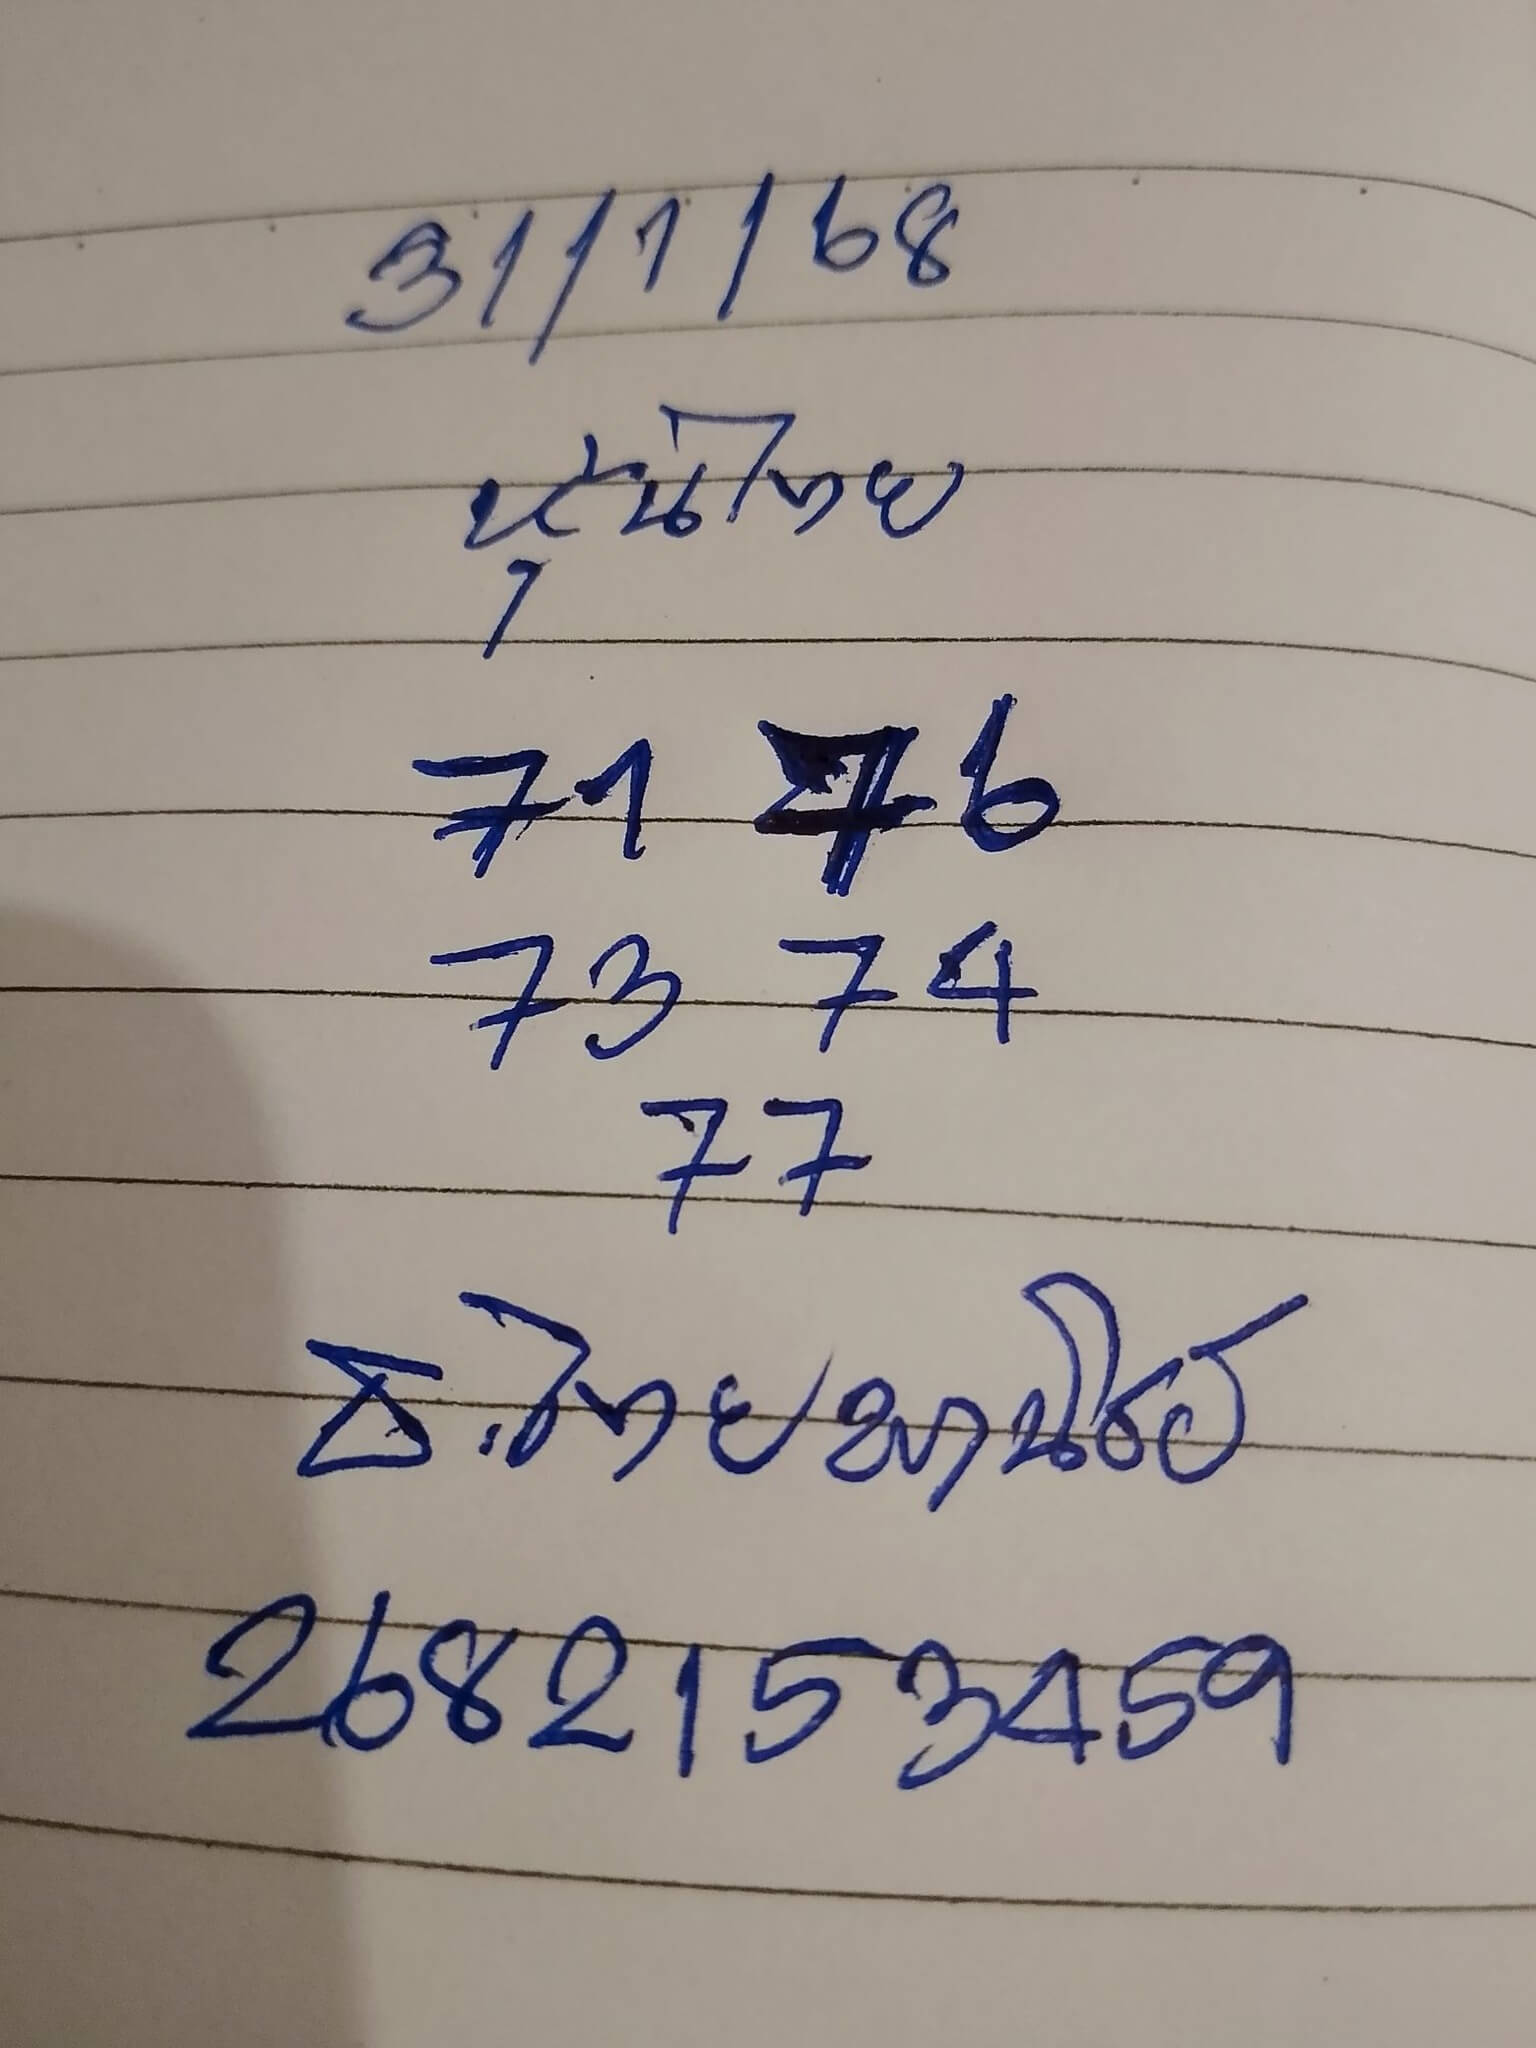 31/1/68
หุ้นไทย
71 76
73 74
77
ธ.ไทยพานิชย์
2682153459